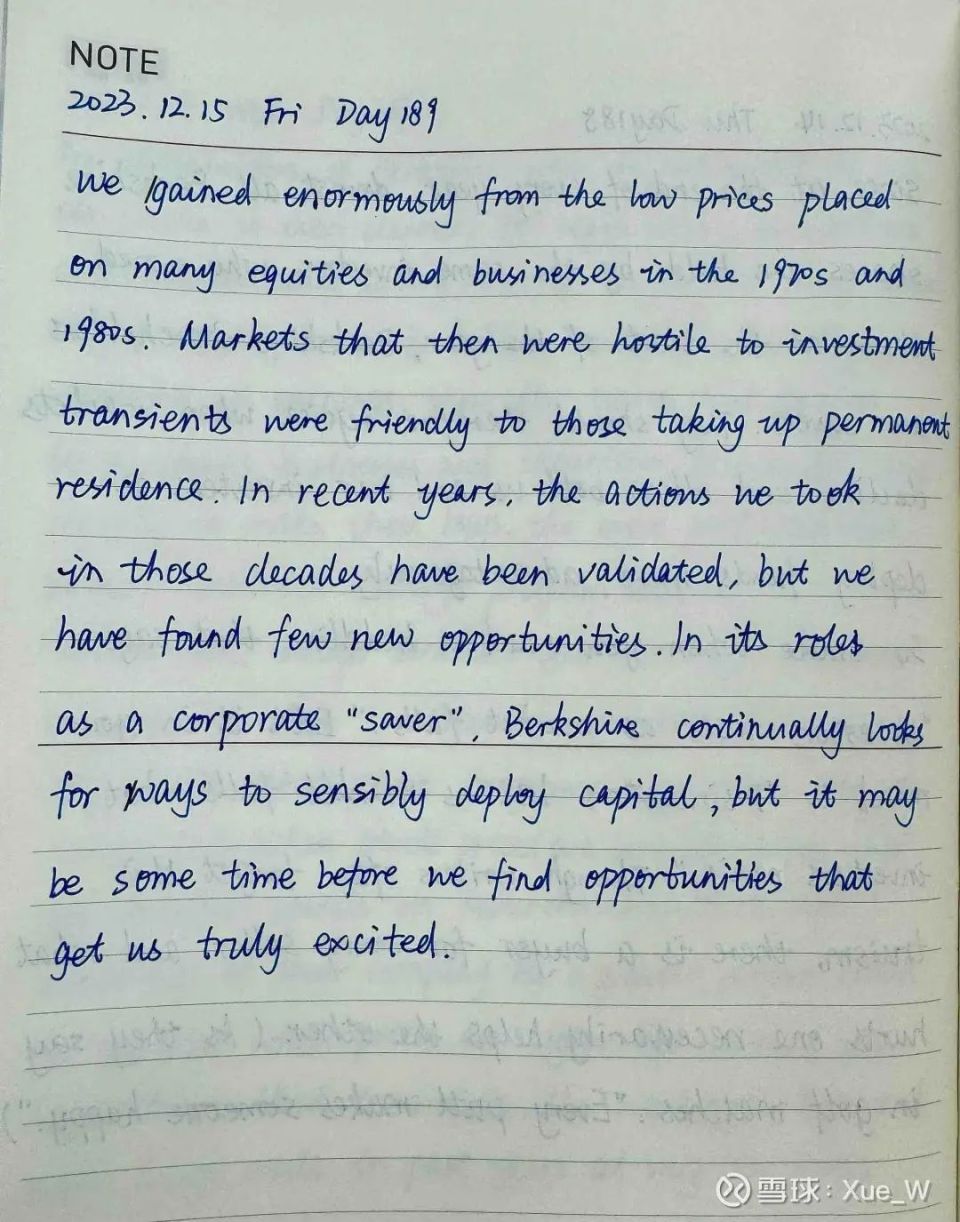 NOTE
2023.12.15 Fri Day 189
We gained enormously from the low prices placed
on many equities and businesses in the 1970s and
1980s. Markets that then were hostile to investment
transients were friendly to those taking up permanent
residence. In recent years, the actions we took
in those decades have been validated, but we
have found few new opportunities. In its roles
as a corporate "saver", Berkshire continually looks
for ways to sensibly deploy capital, but it may
be some time before we find opportunities that
get us truly excited.
雪球：Xue_W